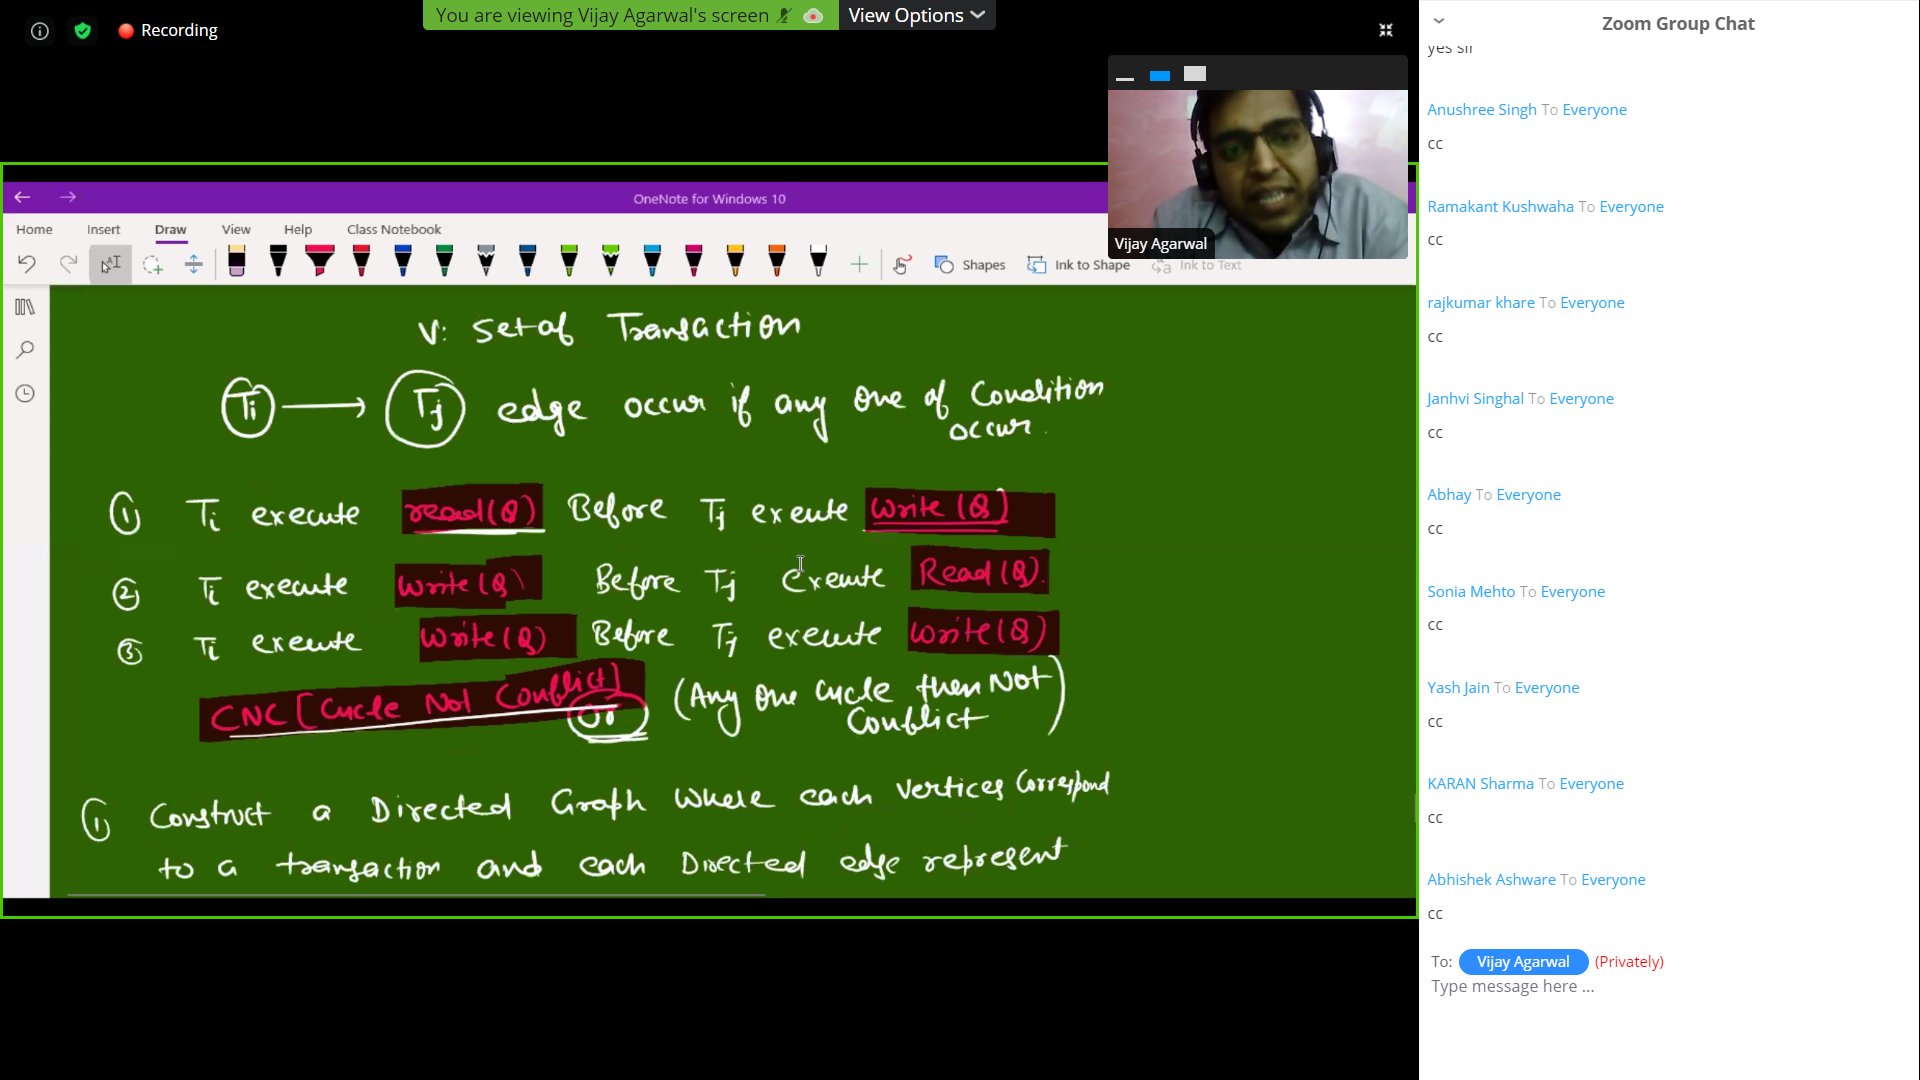 You are viewing Vijay Agarwal's screen
View Options
Recording
Vijay Agarwal
OneNote for Windows 10
Home Insert Draw View Help Class Notebook
Shapes Ink to Shape Ink to Text
V: Set of Transaction
Ti → Tj edge occur if any one of Condition
occur.
① Ti execute read(Q) Before Tj exeute write(Q)
② Ti execute Write(Q) Before Tj Exeute Read(Q).
③ Ti execute Write(Q) Before Tj execute Write(Q)
CNC [Cycle Not Conflict] (Any One Cycle then Not
Conflict)
① Construct a Directed Graph Where each vertices Correspond
to a transaction and each Directed edge represent
Zoom Group Chat
yes sir
Anushree Singh To Everyone
cc
Ramakant Kushwaha To Everyone
cc
rajkumar khare To Everyone
cc
Janhvi Singhal To Everyone
cc
Abhay To Everyone
cc
Sonia Mehto To Everyone
cc
Yash Jain To Everyone
cc
KARAN Sharma To Everyone
cc
Abhishek Ashware To Everyone
cc
To: Vijay Agarwal (Privately)
Type message here ...